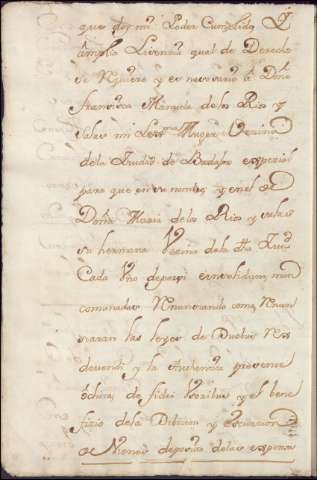 que doy mi Poder Cumplido, y
amplia Licencia qual de Derecho
se Requiere y es necesario a Doña
Francisca Manuela de los Rios y
Salas mi Lexma Muger Vezina
dela Ciudad de Badajoz especial
para que en su nombre y en el de
Doña Maria delos Rios y salas
su hermana Vezina dela dha Ciud
Cada Una deporsi e insolidum man
comunadas Renunciando como Renun
ciaran las leyes de Duobus Res
devendi y la Authentica presente
de fide Iusoribus y el bene
fizio dela Division y Escursion
de